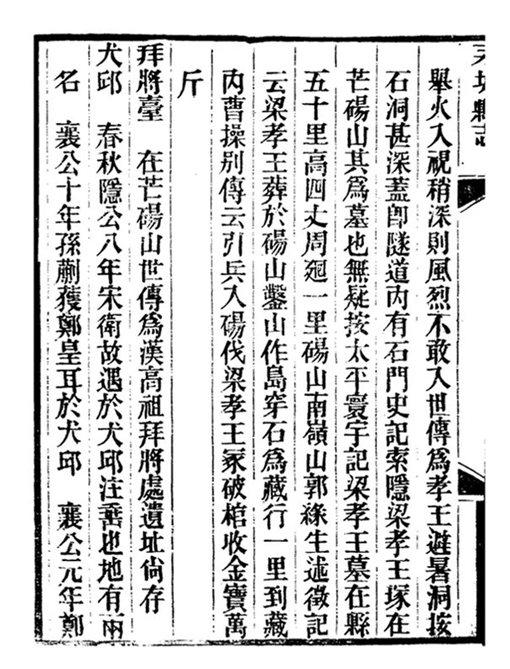 永城縣志
舉火入視稍深則風烈不敢入世傳爲孝王避暑洞按
石洞甚深蓋卽隧道內有石門史記索隱梁孝王塚在
芒碭山其爲墓也無疑按太平寰宇記梁孝王墓在縣
五十里高四丈周廻一里碭山南嶺山郭緣生述徵記
云梁孝王葬於碭山鑿山作島穿石爲藏行一里到藏
內曹操别傳云引兵入碭伐梁孝王冢破棺收金寶萬
斤
拜將臺　在芒碭山世傳爲漢高祖拜將處遺址尙存
犬邱　春秋隱公八年宋衛故遇於犬邱注埀也地有兩
名　襄公十年孫蒯獲鄭皇耳於犬邱　襄公元年鄭